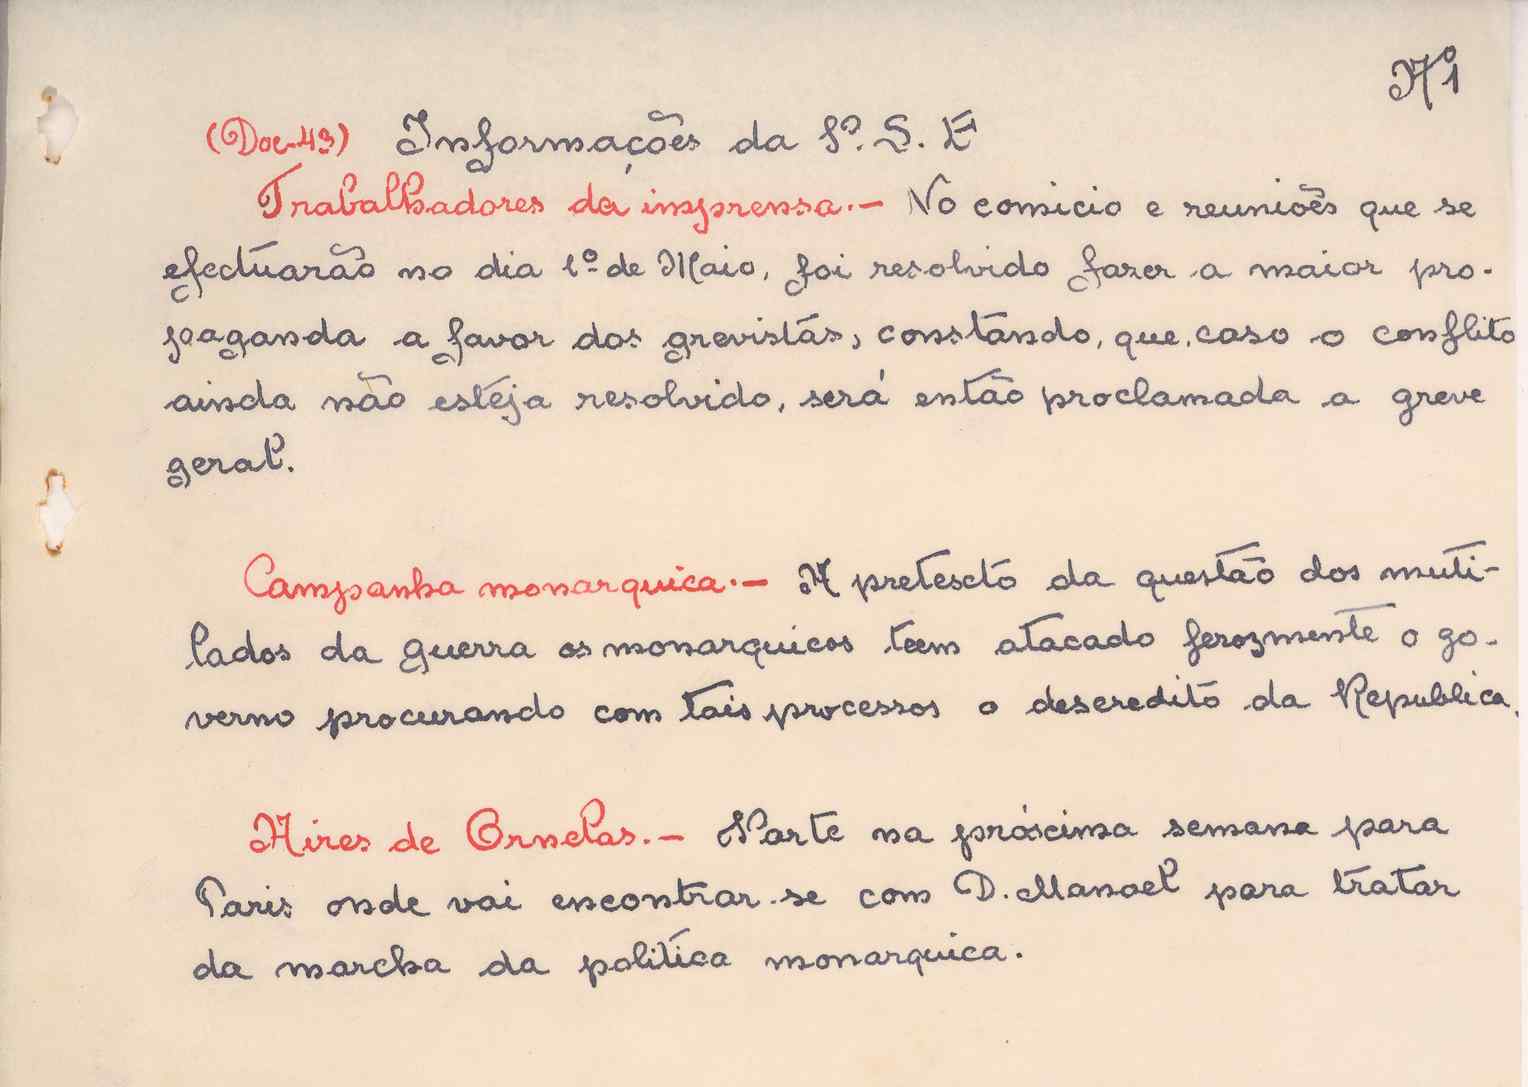 Nº1
(Doc-43) Informações da P. S. E
Trabalhadores da imprensa.— No comicio e reuniões que se
efectuarão no dia 1º de Maio, foi resolvido fazer a maior pro-
paganda a favor dos grevistas, constando, que, caso o conflito
ainda não esteja resolvido, será então proclamada a greve
geral.
Campanha monarquica.— A pretescto da questão dos muti-
lados da guerra os monarquicos teem atacado ferozmente o go-
verno procurando com tais processos o descredito da Republica.
Aires de Ornelas.— Parte na próscima semana para
Paris onde vai encontrar-se com D. Manoel para tratar
da marcha da politica monarquica.